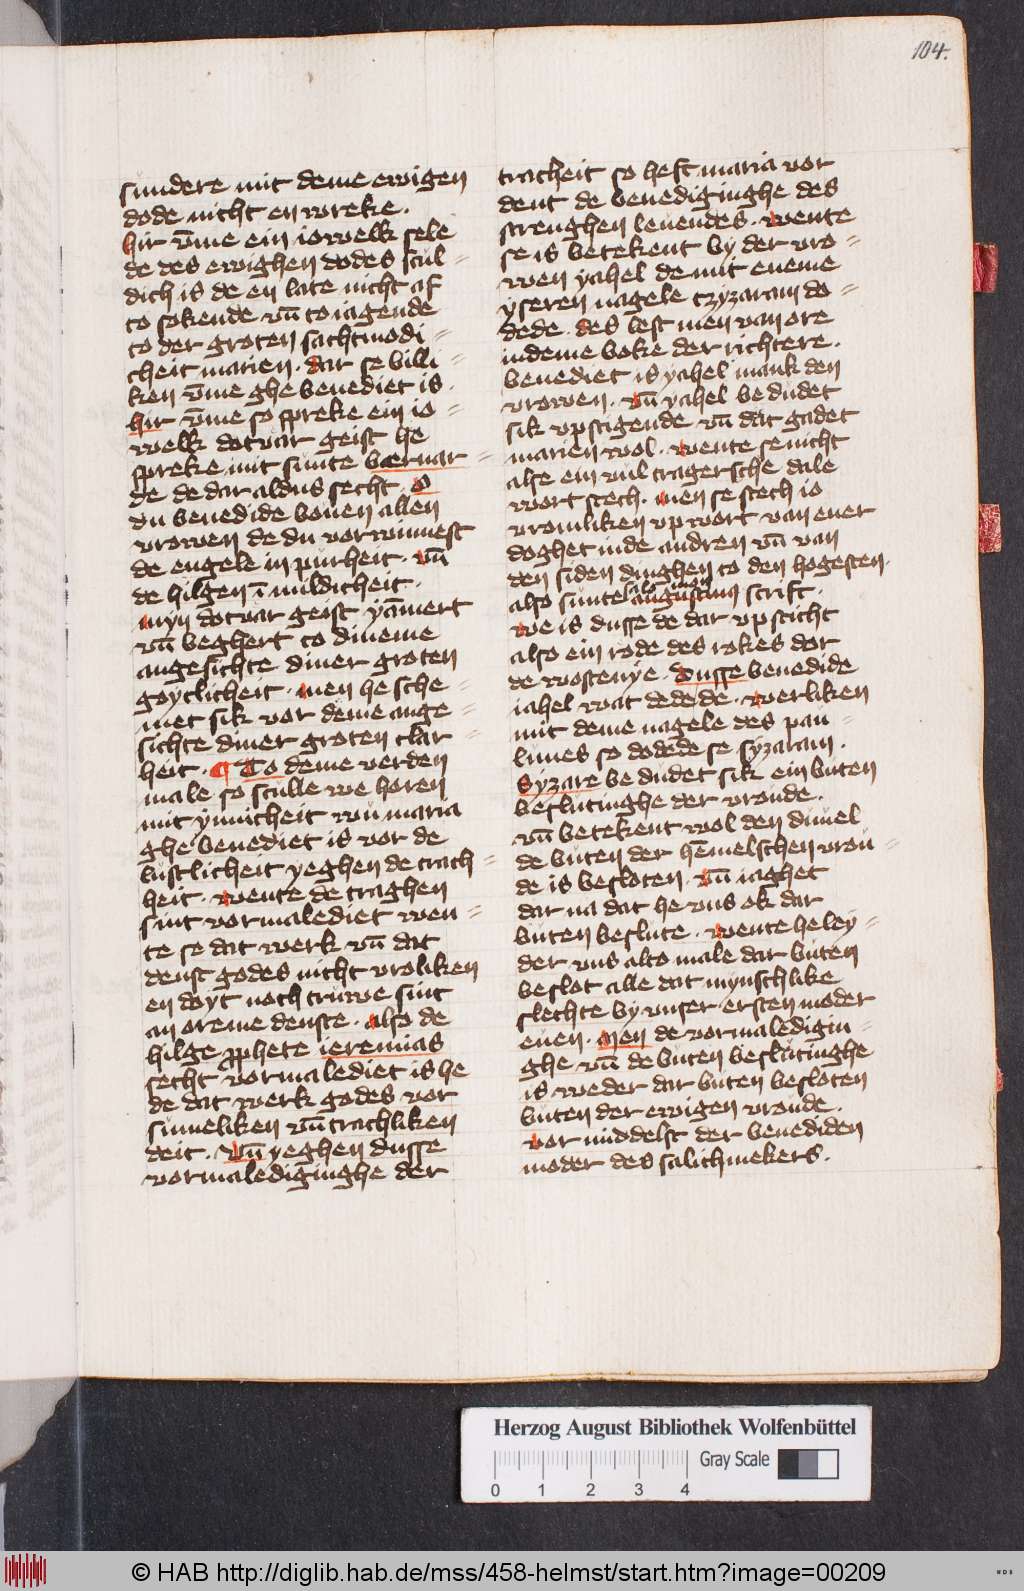 104.
sundere mit deme ewigen
dode nicht en wreke.
hir v̄me ein iowelk sele
de des ewighen dodes scul=
dich is de en late nicht af
to sokende vn̄ to iagende
to der groten sachtmodi=
cheit marien. dar se billi=
ken v̄me ghe benediet is.
hir v̄me so spreke ein io=
welk dotvar geist he
spreke mit sunte bernar=
de de dar aldus secht. O
du benedide bouen allen
vrowen de du vorwinnest
de engele in purheit. vn̄
de hilgen ī mildicheit.
myn dotvar geist yāmert
vn̄ beghert to dineme
angesichte diner groten
goytlicheit. men he sche=
met sik vor deme ange=
sichte diner groten clar=
heit. ¶ To deme verden
male so sculle we horen
mit ynnicheit wu maria
ghe benediet is vor de
lustlicheit yeghen de trach=
heit. wente de traghen
sint vormalediet wen=
te se dat werk vn̄ dat
denst godes nicht vroliken
en doyt noch truwe sint
an oreme denste. also de
hilge ꝓphete ieremias
secht vormalediet is he
de dat werk godes vor
sumeliken vn̄ trachliken
deit. vn̄ yeghen dusse
vormalediginghe der
tracheit so heft maria vor
dent de benediginghe des
strenghen leuendes. wente
se is betekent by der vro=
wen yahel de mit eneme
yseren nagele czyzaram do=
dede. des lest men van ore
indeme boke der richtere.
benediet is yahel mank den
vrowen. vn̄ yahel bedudet
sik vpstigende vn̄ dat gadet
marien wol. wente se nicht
alse ein vul tragersche dale
wort stech. men se stech io
vromliken vpwort van ener
doghet inde andren vn̄ van
den siden dinghen to den hogesten.
also sunte augustinus scrift.
we is dusse de dar vp sticht
also ein rode des rokes dor
de wostenye. Dusse benedide
iahel wat dedede. werliken
mit deme nagele des pau=
lunes so dodede se syzaram.
Syzare bedudet sik ein buten
beslutinghe der vroude.
vn̄ betekent wol den duuel
de buten der hēmelschen vrou=
de is besloten. vn̄ iaghet
dar na dat he vns ok dar
buten beslute. wente he ley=
der vns alto male dar buten
beslot alle dat mynschlike
slechte by vnser ersten moder
euen. Men de vormaledigin=
ghe vn̄ de buten beslutinghe
is weder dar buten besloten
buten der ewigen vroude.
vor middelst der benediden
moder des salichmekers.
Herzog August Bibliothek Wolfenbüttel
Gray Scale
0 1 2 3 4
© HAB http://diglib.hab.de/mss/458-helmst/start.htm?image=00209